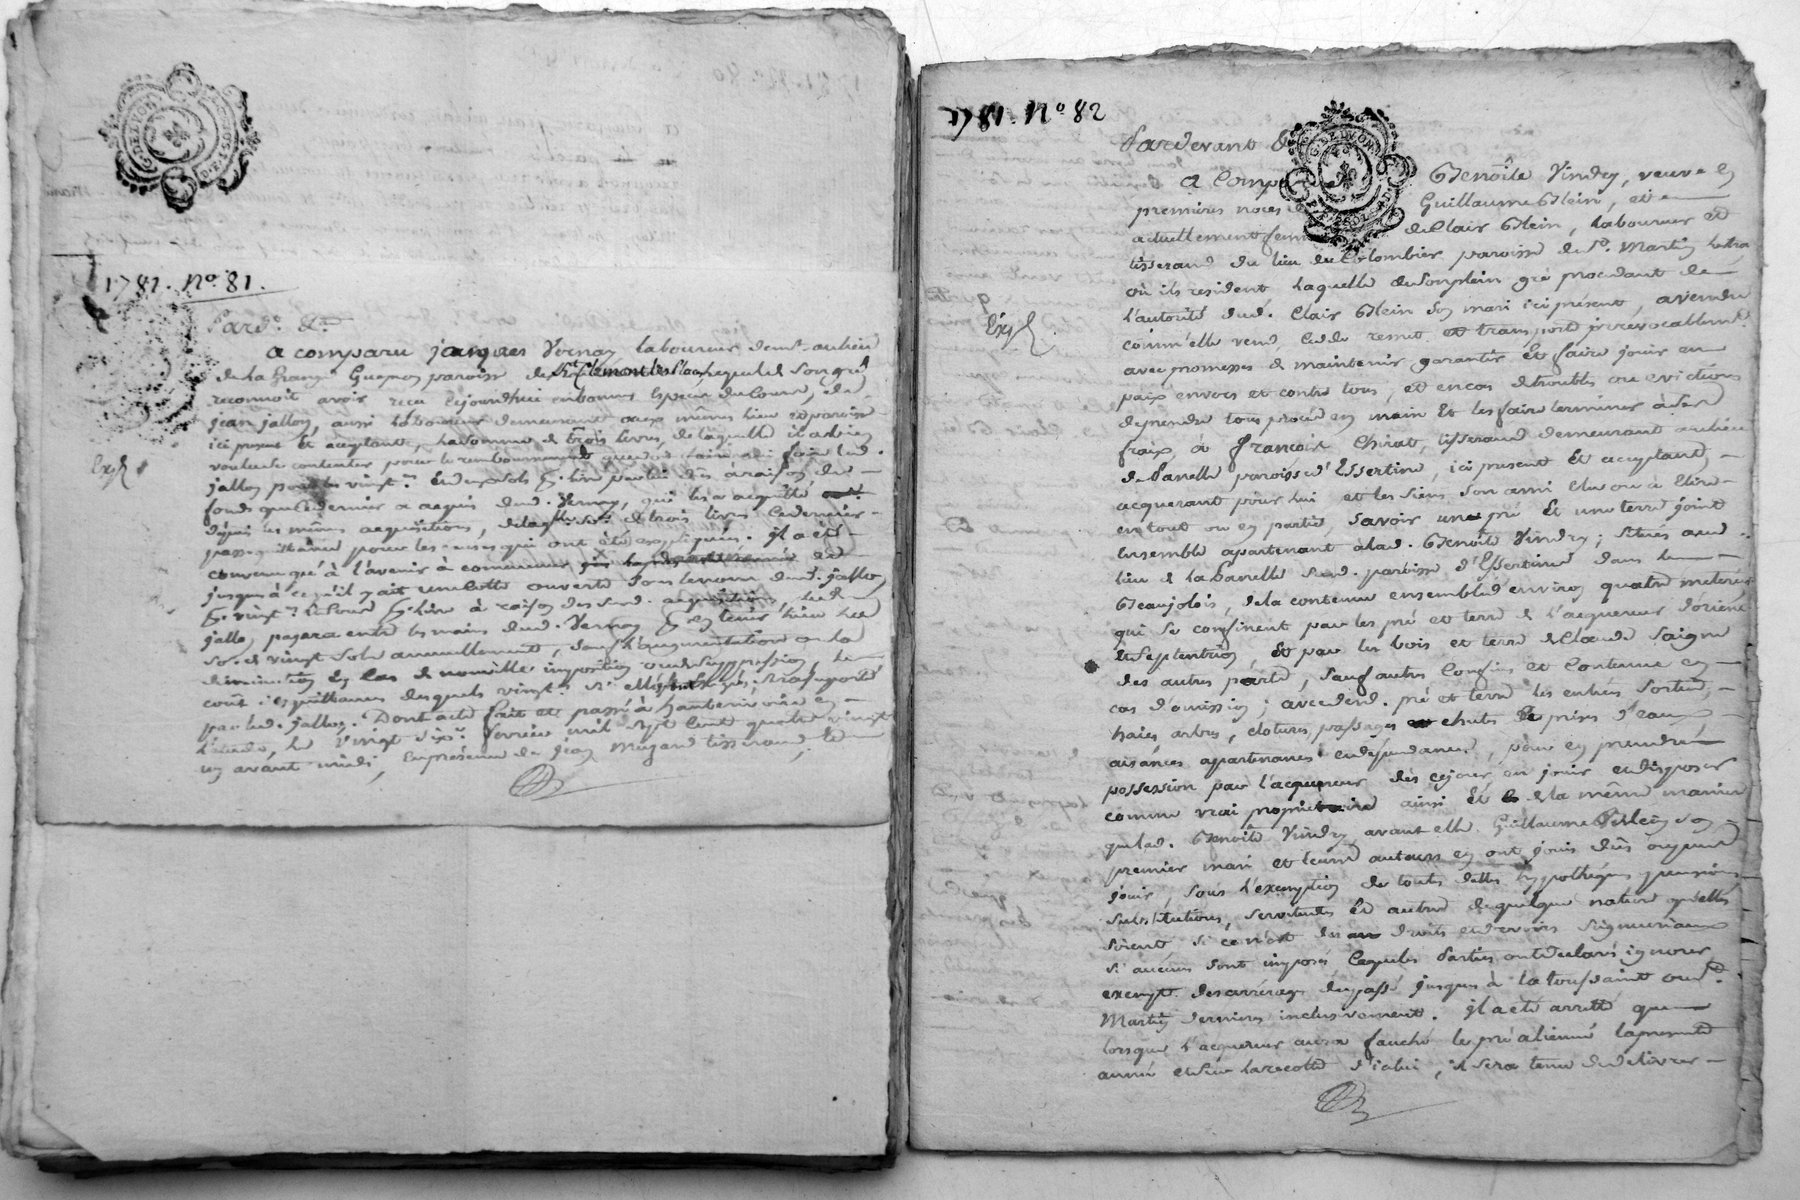 G. DE LYON
1781. N.o 81.
Pard.t &.a
a comparu jacques Vernay laboureur dem.t au lieu
de la Grange Guepon paroisse de St Clément les places lequel de son gré
reconnoit avoir recu cejourdhui en bonnes especes du cours, de
jean jalloy, aussi laboureur demeurant aux memes lieu et paroisse
ici present et acceptant, la somme de trois livres, de laquelle il a bien
voulu se contenter pour le remboursement que
jalloy pour les vingt.es
fonds que ce dernier a acquis dud. Vernay, qui les a acquitté
depuis les mêmes acquisitions, de laq.lle so.e de trois livres ce dernier
passe quittance pour les causes qui ont été expliquées. jl a été
convenu qu'à l'avenir à commencer
jusques à ce qu'il y ait une cotte ouverte sous le nom dud. jalloy
à raison des susd. acquisitions, led.
jalloy payera entre les mains dud. Vernay
so.e de vingt sols annuellement, sauf l'augmentation ou la
diminution en cas de nouvelle imposition ou de suppression, le
coût et quittances desquels vingt.es si elles sera suporté
par led. jalloy. Dont acte fait et passé à
l'étude, le vingt six.e fevrier mil sept cent quatre vingt
un avant midi, en présence de jean Mugand tisserand de
Exp.
1781. N.o 82
Pardevant &
a Comparu Benoîte Vindry, veuve en
premieres noces Guillaume Blein, et
actuellement femme de Clair Blein, laboureur et
tisserand du lieu du Colombier paroisse de St. Martin
où ils resident laquelle de son plein gré procedant de
l'autorité dud. Clair Blein son mari ici present, a vendu
comm'elle vend, cede remet et transporte irrevocablement
avec promesses de maintenir garantir et faire jouir en
paix envers et contre tous, et en cas de troubles ou evictions
de prendre tous procès en main et les faire terminer à ses
fraix, à françois Chirat, tisserand demeurant au lieu
de Panelle paroisse d'Essertine, ici present et acceptant,
acquerant pour lui et les siens son ami élu ou à élire
en tout ou en partie, savoir un pré et une terre joint
ensemble apartenant à lad. Benoîte Vindry, situés aud.
lieu de la Panelle susd. paroisse d'Essertine dans le
Beaujolois, de la contenue ensemble d'environ quatre meterées
qui se confinent par les pré et terre de l'acquereur d'orient
et septentrion, et par les bois et terre de Claude Saigne
des autres parts, sauf autres confins et contenue en
cas d'omission; avec lesd. pré et terre les entrées sorties,
haies arbres, clotures, passages chutes et prises d'eaux
aisances apartenances et dependances, pour en prendre
possession par l'acquereur dès cejour en jouir et disposer
comme vrai proprietaire ainsi et de la même maniere
que lad. Benoîte Vindry avant elle Guillaume Blein son
premier mari et leurs auteurs en ont joui dûs ou pu
jouir, sous l'exemption de toutes dettes hypothéques pensions
substitutions, servitudes et autres de quelque nature qu'elles
soient si ce n'est des droits et devoirs seigneuriaux
si aucuns sont imposés lesquels Parties ont declaré ignorer
exempt des arrérages du passé jusques à la toussaint ou St.
Martin derniers inclusivement. jl a été arretté que
lorsque l'acquereur aura fauché le pré aliéné la presente
année et levé la recolte d'icelui, il sera tenu de delivrer
Exp.